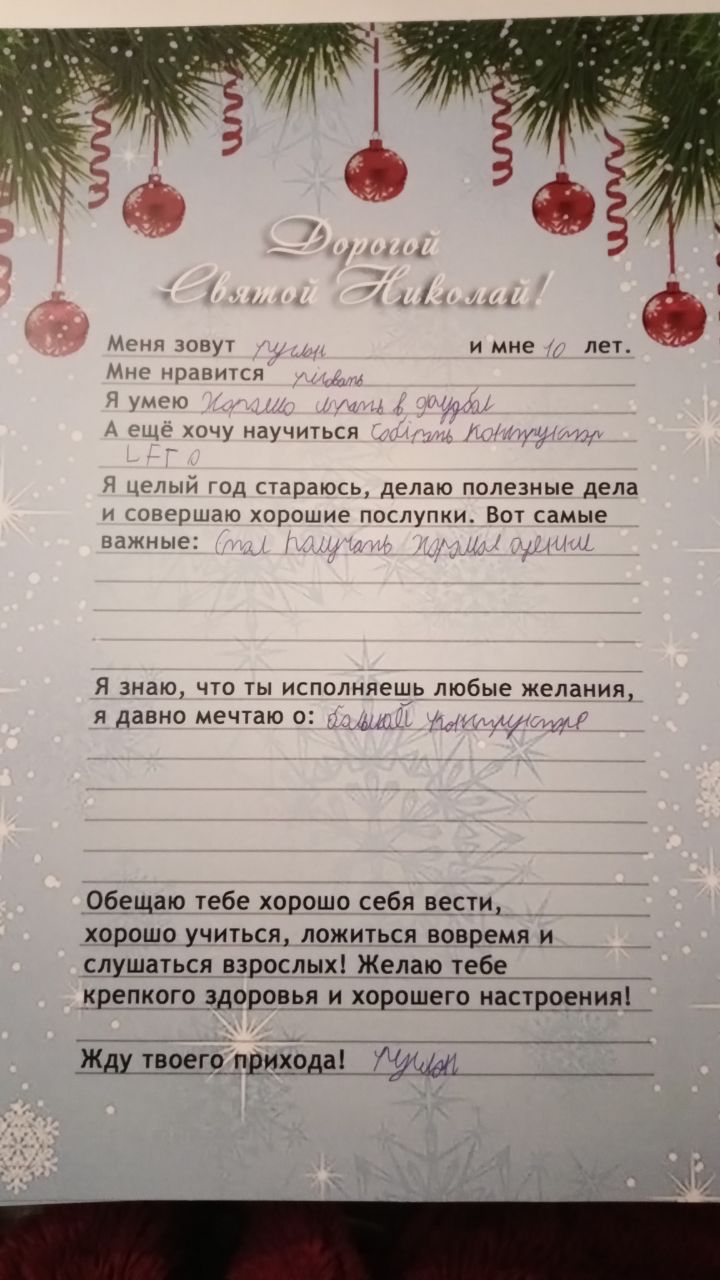 Дорогой
Святой Николай!
Меня зовут руслан и мне 10 лет.
Мне нравится рісовать
Я умею Хорашо играть в
А ещё хочу научиться Собірать конструктор
LEГО
Я целый год стараюсь, делаю полезные дела
и совершаю хорошие послупки. Вот самые
важные: Стал палучать
Я знаю, что ты исполняешь любые желания,
я давно мечтаю о: конструкторе
Обещаю тебе хорошо себя вести,
хорошо учиться, ложиться вовремя и
слушаться взрослых! Желаю тебе
крепкого здоровья и хорошего настроения!
Жду твоего прихода! руслан